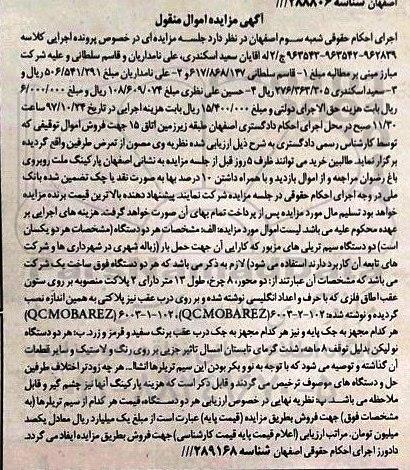 اصفهان شناسه ۲۸۸۸۰۶///
آگهی مزایده اموال منقول
اجرای احکام حقوقی شعبه سوم اصفهان در نظر دارد جلسه مزایده‌ای در خصوص پرونده اجرایی کلاسه
۹۶۲۸۳۹-۹۶۳۵۴۲-۹۶۳۵۴۳ج/۲ له آقایان سعید اسکندری، علی نامداریان و قاسم سلطانی و علیه شرکت
مبارز مبنی بر مطالبه مبلغ ۱- قاسم سلطانی ۶۱۷/۸۶۸/۱۴۷و ۲- علی نامداریان مبلغ ۵۰۶/۵۴۱/۲۹۱ ریال و
۳- سعید اسکندری ۲۷۶/۳۶۲/۳۰۵ ریال ۴- حسین علی نظری مبلغ ۱۰۸/۶۰۹/۰۷۴ ریال و مبلغ ۶/۰۰۰/۰۰۰
ریال بابت هزینه حق الاجرای دولتی و مبلغ ۱۵/۴۰۰/۰۰۰ ریال بابت هزینه اجرایی در تاریخ ۹۷/۱۰/۲۴ ساعت
۱۱/۳۰ صبح در محل اجرای احکام دادگستری اصفهان طبقه زیرزمین اتاق ۱۵ جهت فروش اموال توقیفی که
توسط کارشناس رسمی دادگستری به شرح ذیل ارزیابی شده نظریه وی مصون از تعرض طرفین واقع گردیده
برگزار نماید. طالبین خرید می توانند ظرف ۵ روز قبل از جلسه مزایده به نشانی اصفهان پارکینگ ملت روبروی
باغ رضوان مراجعه و از اموال بازدید و با همراه داشتن ۱۰ درصد بها به صورت نقد یا چک تضمین شده بانک
ملی در وجه اجرای احکام حقوقی در جلسه مزایده شرکت نمایند. پیشنهاد دهنده بالاترین قیمت برنده مزایده
خواهد بود تسلیم مال مورد مزایده پس از پرداخت تمام بهای آن صورت خواهد گرفت. هزینه های اجرایی بر
عهده محکوم علیه می باشد. لیست اموال مورد مزایده: الف: مشخصات هر دو دستگاه (مشخصات هر دو یکسان
است) دو دستگاه سیم تریلی های مزبور که کارایی آن جهت حمل بار (زباله شهری در شهرداری ها و شرکت
های تابعه آن کاربرد دارند استفاده می شود) لازم به ذکر می باشد که هر دو دستگاه فوق ساخت یک شرکت
می باشد که مشخصات آن عبارتند از: دو محوره ۸ چرخ، طول ۱۳ متر دارای ۲ پلاکت منصوبه بر روی ستون
عقب اطاق فلزی که با حرف و اعداد انگلیسی نوشته شده و بر روی درب عقب نیز پلاکتی به همین اندازه نصب
گردیده و نوشته شده: ۱۰۲-۲-۶۰۰۳ (QCMOBAREZ)، ۱۰۲-۱-۶۰۰۳ (QCMOBAREZ)
هر کدام مجهز به جک پایه و نیز هر کدام مجهز به جک درب عقب برنگ سفید و قرمز و زرد. ب: هر دو دستگاه
نو لیکن بدلیل توقف ۸ ماهه، شدت گرمای تابستان امسال تاثیر جزیی بر روی رنگ و لاستیک و سایر قطعات
آن گذاشته و توصیه می شود که با توجه به نو و بکر بودن این سیم تریلرها انشاا... هر چه زودتر اختلاف طرفین
حل و دستگاه های موصوف ترخیص می گردند و قابل ذکر است که هزینه پارکینگ آنها نیز چشم گیر و قابل
ملاحظه می باشد. ب: نظریه نهایی در خصوص ارزیابی هر دو دستگاه، قیمت هر کدام از سیم تریلرها (به
مشخصات فوق) جهت فروش بطریق مزایده (قیمت پایه) عبارت است از مبلغ یک میلیارد ریال معادل یکصد
میلیون تومان. مراتب ارزیابی (اعلام قیمت پایه قیمت کارشناسی) جهت فروش بطریق مزایده ایفاد می گردد.
دادورز اجرای احکام حقوقی اصفهان شناسه ۲۸۹۱۶۸///